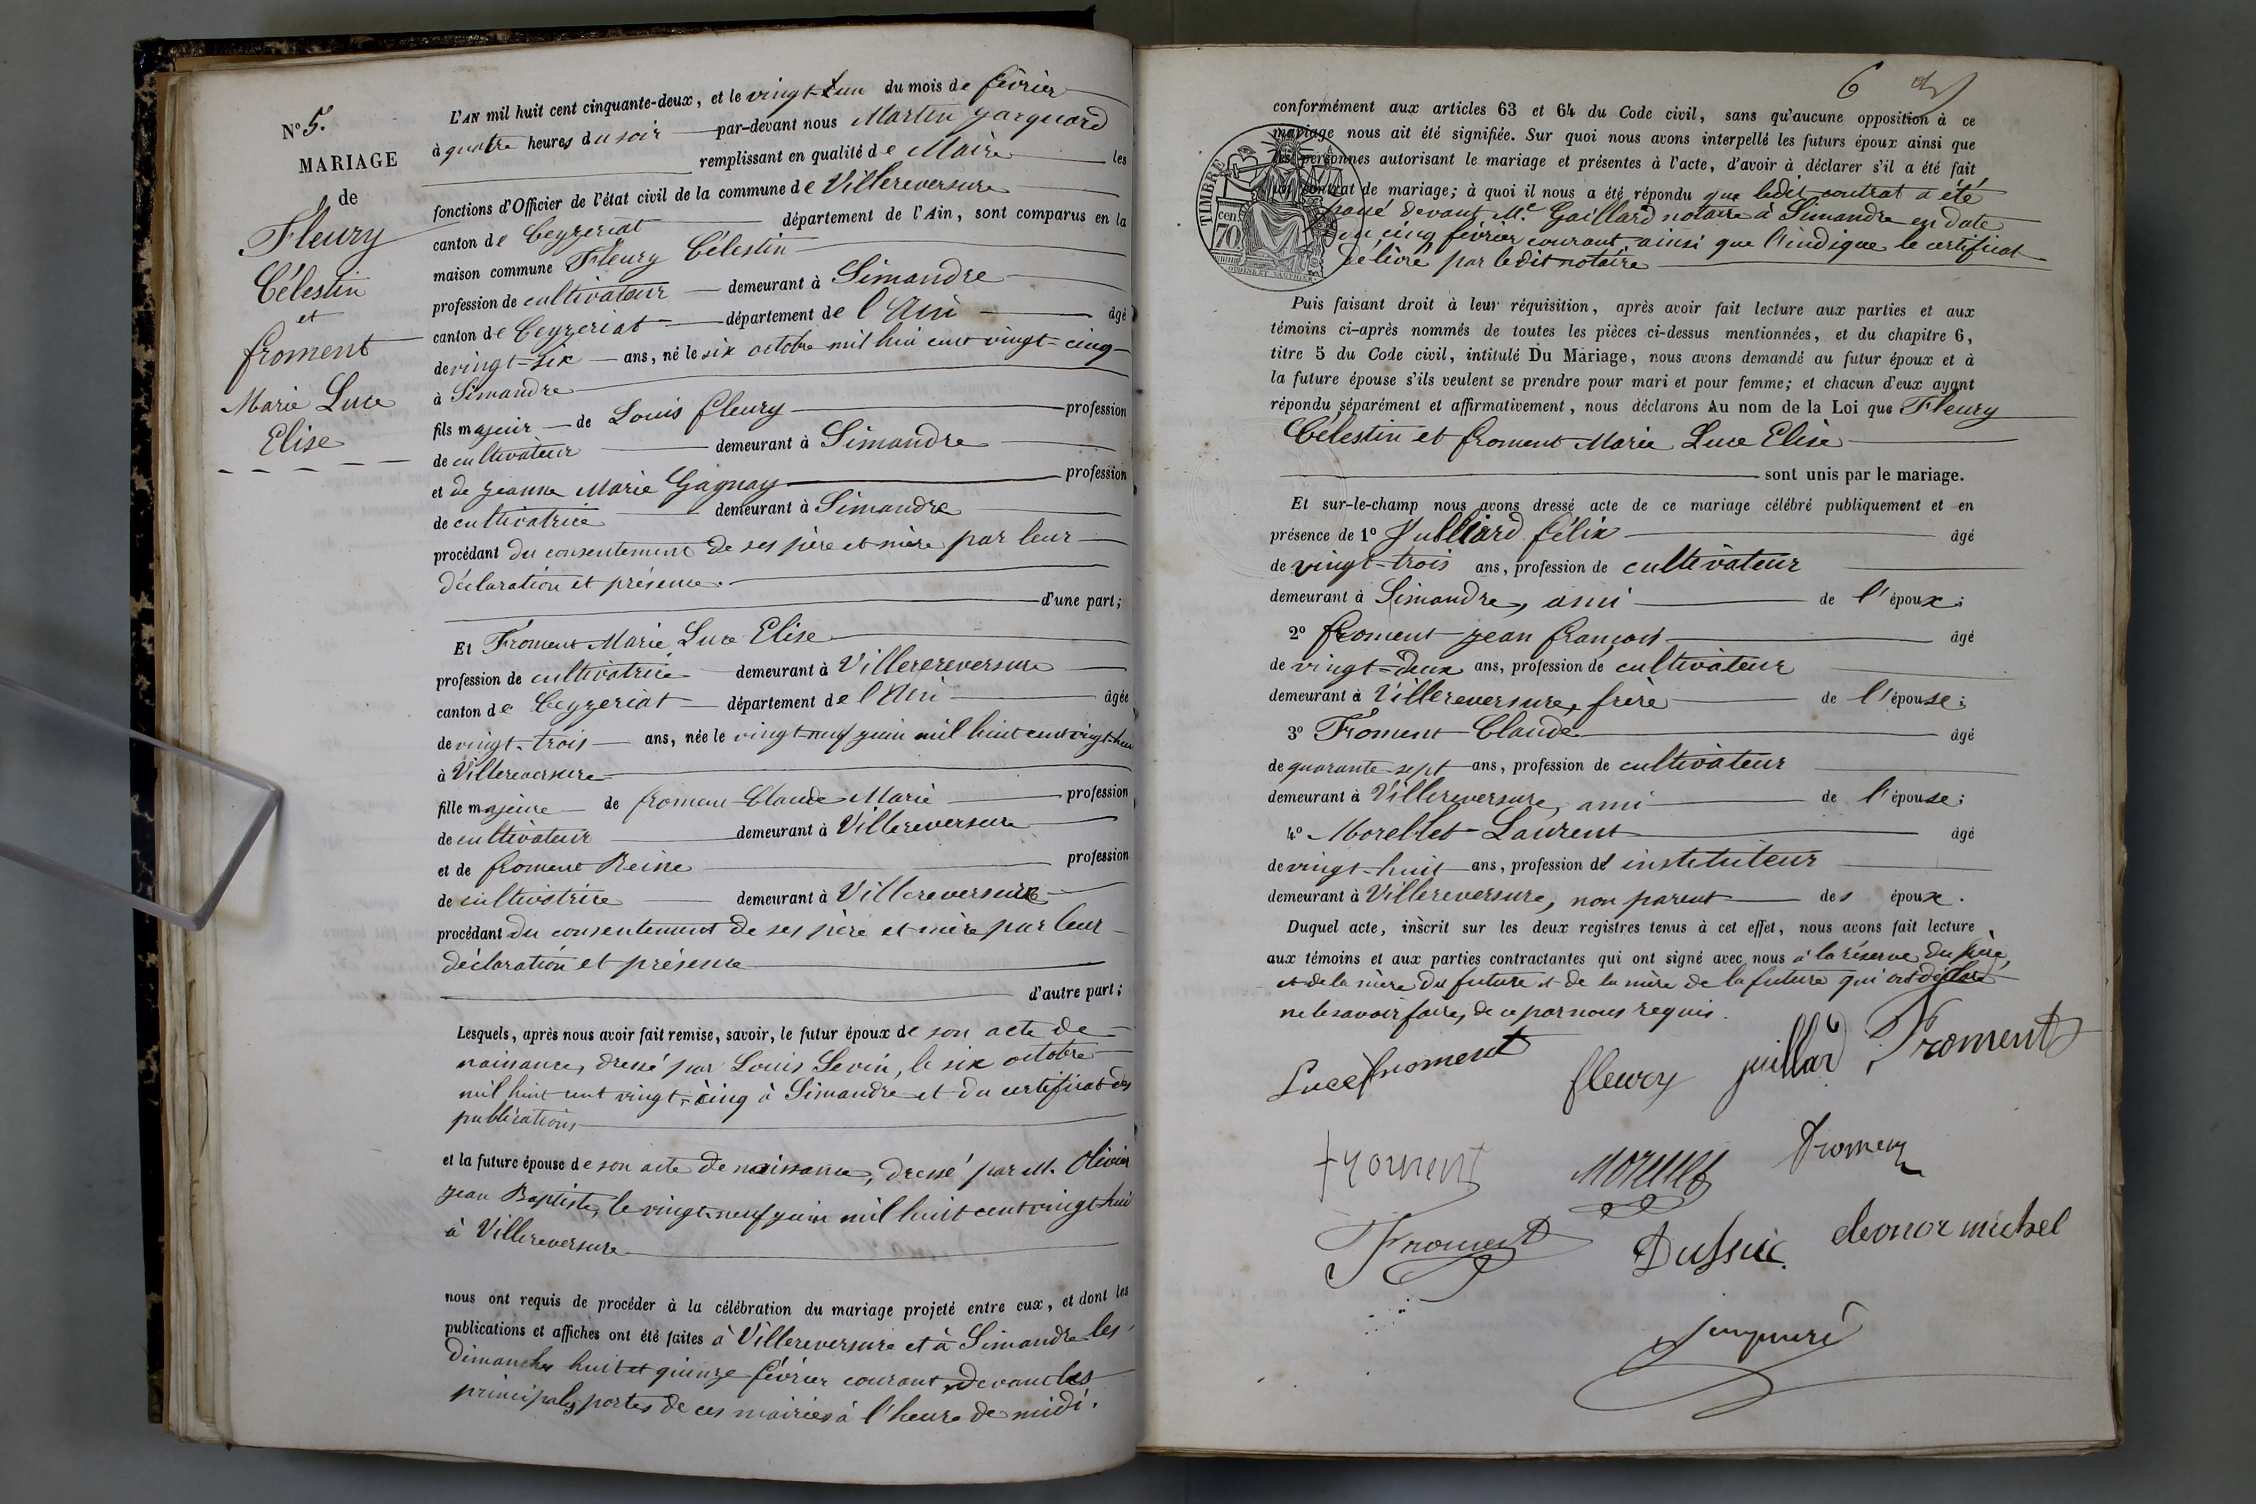 N° 5.
MARIAGE
de
Fleury
Célestin
et
froment
Marie Luce
Elise
L'AN mil huit cent cinquante-deux, et le vingt-un du mois de février
à quatre heures du soir par-devant nous Martin Jacquard
remplissant en qualité de Maire les
fonctions d'Officier de l'état civil de la commune de Villereversure
canton de Ceyzeriat département de l'Ain, sont comparus en la
maison commune Fleury Célestin
profession de cultivateur demeurant à Simandre
canton de Ceyzeriat département de l'Ain âgé
de vingt-six ans, né le six octobre mil huit cent vingt-cinq
à Simandre
fils majeur de Louis fleury profession
de cultivateur demeurant à Simandre
et de jeanne Marie Gagnay profession
de cultivatrice demeurant à Simandre
procédant du consentement de ses père et mère par leur
déclaration et présence.
d'une part;
Et Froment Marie Luce Elise
profession de cultivatrice demeurant à Villerereversure
canton de Ceyzeriat département de l'Ain âgée
de vingt-trois ans, née le vingt-neuf juin mil huit cent vingt-huit
à Villereversure
fille majeure de froment Claude Marie profession
de cultivateur demeurant à Villereversure
et de froment Reine profession
de cultivatrice demeurant à Villereversure
procédant du consentement de ses père et mère par leur
déclaration et présence
d'autre part;
Lesquels, après nous avoir fait remise, savoir, le futur époux de son acte de
naissance, dressé par Louis Sevin, le six octobre
mil huit cent vingt-cinq à Simandre et du certificat des
publications
et la future épouse de son acte de naissance, dressé par M. Olivier
jean Baptiste, le vingt-neuf juin mil huit cent vingt-huit
à Villereversure
nous ont requis de procéder à la célébration du mariage projeté entre eux, et dont les
publications et affiches ont été faites à Villereversure et à Simandre les
dimanches huit et quinze février courant, devant les
principales portes de ces mairies à l'heure de midi.
6
conformément aux articles 63 et 64 du Code civil, sans qu'aucune opposition à ce
mariage nous ait été signifiée. Sur quoi nous avons interpellé les futurs époux ainsi que
les personnes autorisant le mariage et présentes à l'acte, d'avoir à déclarer s'il a été fait
un contrat de mariage; à quoi il nous a été répondu que ledit contrat a été
passé devant Me Gaillard notaire à Simandre en date
du cinq février courant ainsi que l'indique le certificat
délivré par ledit notaire
TIMBRE
cen
70
Puis faisant droit à leur réquisition, après avoir fait lecture aux parties et aux
témoins ci-après nommés de toutes les pièces ci-dessus mentionnées, et du chapitre 6,
titre 5 du Code civil, intitulé Du Mariage, nous avons demandé au futur époux et à
la future épouse s'ils veulent se prendre pour mari et pour femme; et chacun d'eux ayant
répondu séparément et affirmativement, nous déclarons Au nom de la Loi que Fleury
Célestin et froment Marie Luce Elise
sont unis par le mariage.
Et sur-le-champ nous avons dressé acte de ce mariage célébré publiquement et en
présence de 1° Julliard félix âgé
de vingt-trois ans, profession de cultivateur
demeurant à Simandre, ami de l'époux;
2° froment jean françois âgé
de vingt-deux ans, profession de cultivateur
demeurant à Villereversure, frère de l'épouse;
3° Froment Claude âgé
de quarante sept ans, profession de cultivateur
demeurant à Villereversure, ami de l'épouse;
4° Morellet Laurent âgé
de vingt-huit ans, profession d'instituteur
demeurant à Villereversure, non parent des époux.
Duquel acte, inscrit sur les deux registres tenus à cet effet, nous avons fait lecture
aux témoins et aux parties contractantes qui ont signé avec nous à la réserve du père
et de la mère du future et de la mère de la future qui ont déclaré
ne le savoir faire, de ce par nous requis.
Luce froment
fleury
juillard
Froment
froment
morellet
fromen
Froment
Dufsuc
eleonor michel